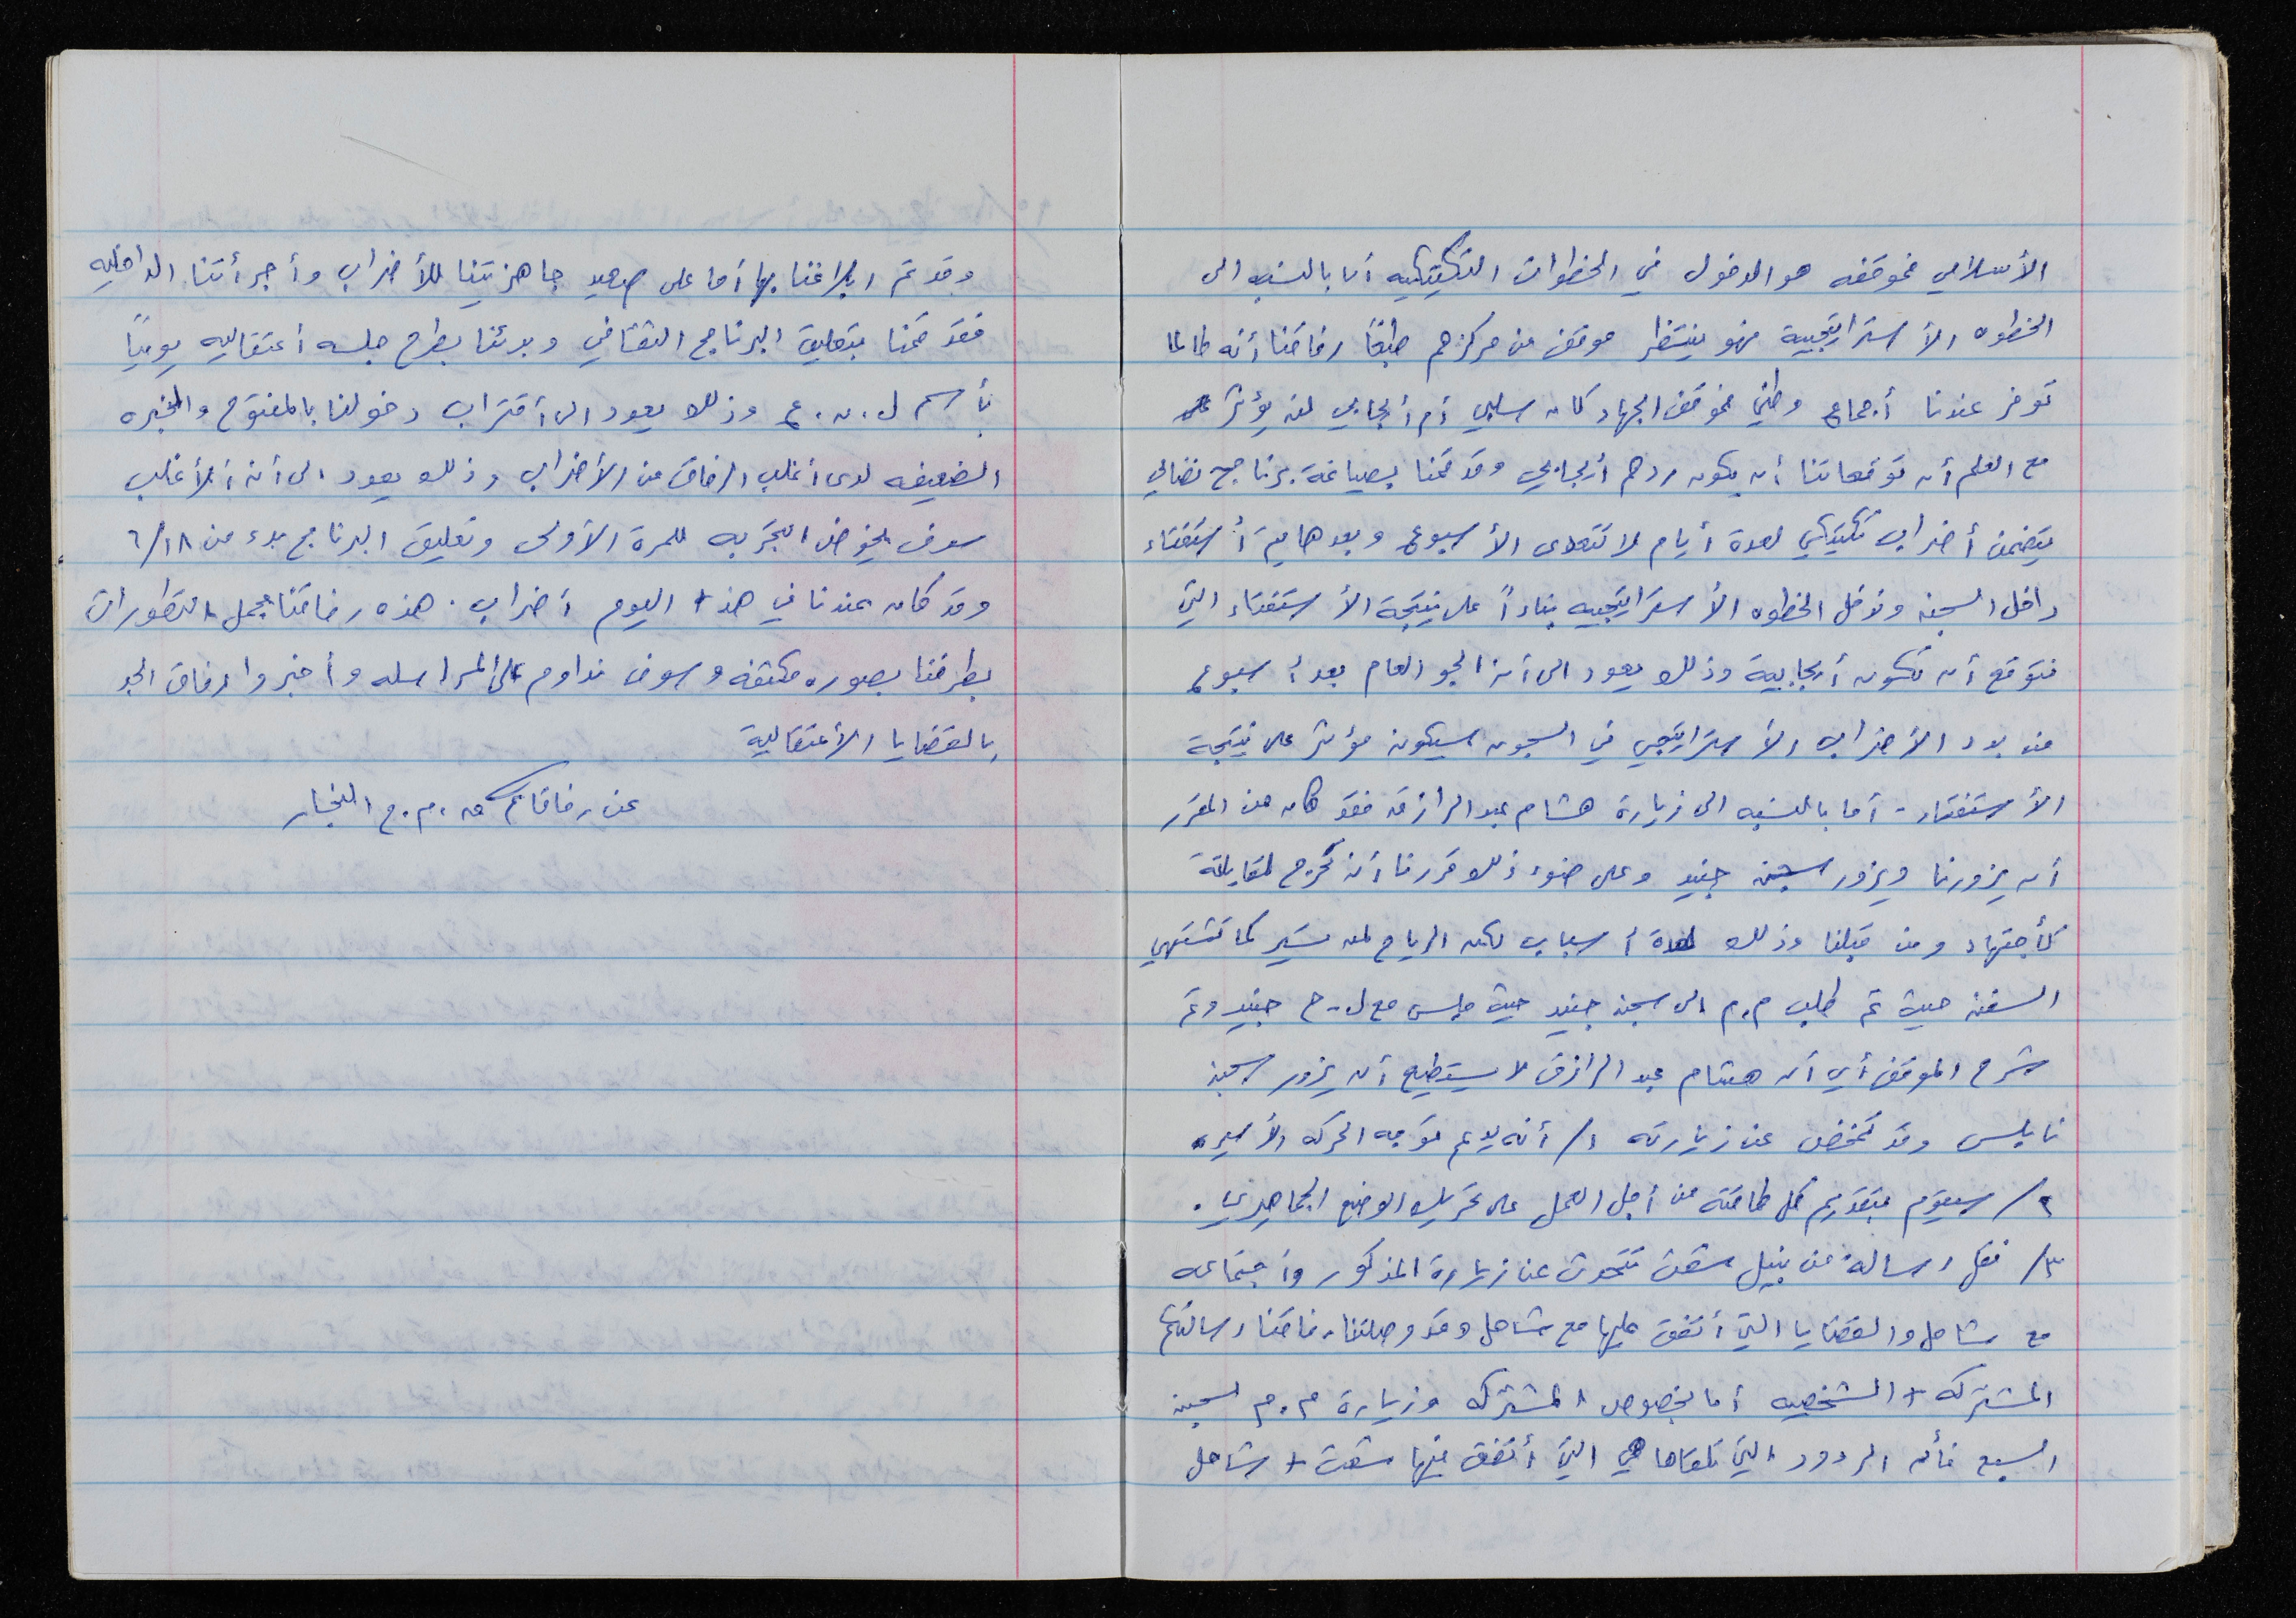 الأسلامي فموقفه هو الدخول في الخطوات التكتيكيه أما بالنسبه الى
الخطوه الأستراتيجية فهو ينتظر موقف من مركزهم طبعاً رفاقنا أنه طالما
توفر عندنا أجماع وطني فموقف الجهاد كان سلبي أم أيجابي لن يؤثر
مع العلم أن توقعاتنا أن يكون ردهم أيجابي وقد قمنا بصياغة برنامج نضالي
يتضمن أضراب تكتيكي لعدة أيام لا تتعدى الأسبوع وبعدها يتم أستفتاء
داخل السجن وندخل الخطوه الأستراتيجيه بناءاً على نتيجة الأستفتاء التي
نتوقع أن تكون أيجابية وذلك يعود الى أن الجو العام بعد أسبوع
من بدء الأضراب الأستراتيجي في السجون سيكون مؤثر على نتيجة
الأستفتاء - أما بالنسبه الى زيارة هشام عبد الرازق فقد كان من المقرر
أن يزورنا ويزور سجن جنيد وعلى ضوء ذلك قررنا أن نخرج لمقابلته
كأجتهاد ومن قبلنا وذلك لعدة أسباب لكن الرياح لن تسير كما تشتهي
السفن حيث تم طلب م.م الى سجن جنيد حيث جلس مع ل.ح جنيد وتم
شرح الموقف أي أن هشام عبد الرازق لا يستطيع أن يزور سجن
نابلس وقد تمخض عن زيارته ١/ أنه يدعم توجه الحركه الأسيره
٢/ سيقوم بتقديم كل طاقته من أجل العمل على تحريك الوضع الجماهيري.
٣/ نقل رسالة من نبيل شعث تتحدث عن زيارة المذكور وأجتماعه
مع شاحل والقضايا التي أتفق عليها مع شاحل وقد وصلتنا رفاقنا رسالتكم
المشتركه + الشخصيه أما بخصوص المشتركه وزيارة م.م لسجن
السبع فأن الردود التي تلقاها هي التي أتفق فيها شعث + شاحل
وقد تم ابلاغنا بها أما على صعيد جاهزيتنا للأضراب وأجرأتنا الداخليه
فقد قمنا بتعليق البرنامج الثقافي وبدئنا بطرح جلسه أعتقاليه يومياً
بأسم ل.ن.ع وذلك يعود الى أقتراب دخولنا بالمفتوح والخبره
الضعيفه لدى أغلب الرفاق من الأضراب وذلك يعود الى أن الأغلب
سوف يخوض التجربه للمرة الأولى وتعليق البرنامج بدء من ٦/١٨
وقد كان عندنا في هذا اليوم أضراب. هذه رفاقنا مجمل التطورات
بطرفنا بصوره مكثفه وسوف نداوم على المراسله وأخبروا رفاق الجد
بالقضايا الأعتقالية
عن رفاقكم م.م.ح النجار